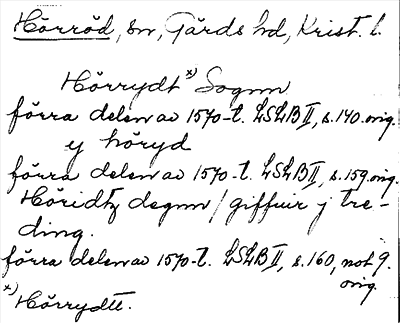 Hörröd, sn, Gärds hd, Krist. l.
Hörrydt x) Sognn
förra delen av 1570-t. LSLB II, s. 140. orig.
ej höryd
förra delen av 1570-t. LSLB II, s. 159. orig.
Höridtz degnn / giffuir j tre-
ding.
förra delen av 1570-t. LSLB II, s. 160, not 9.
orig.
x) Hörrydtt.